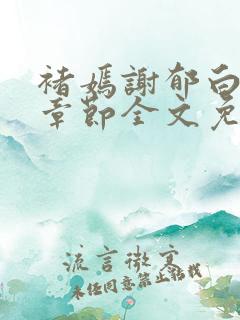 褚嫣謝郁白
章節全文免
流言微寒
未经同意禁止转载